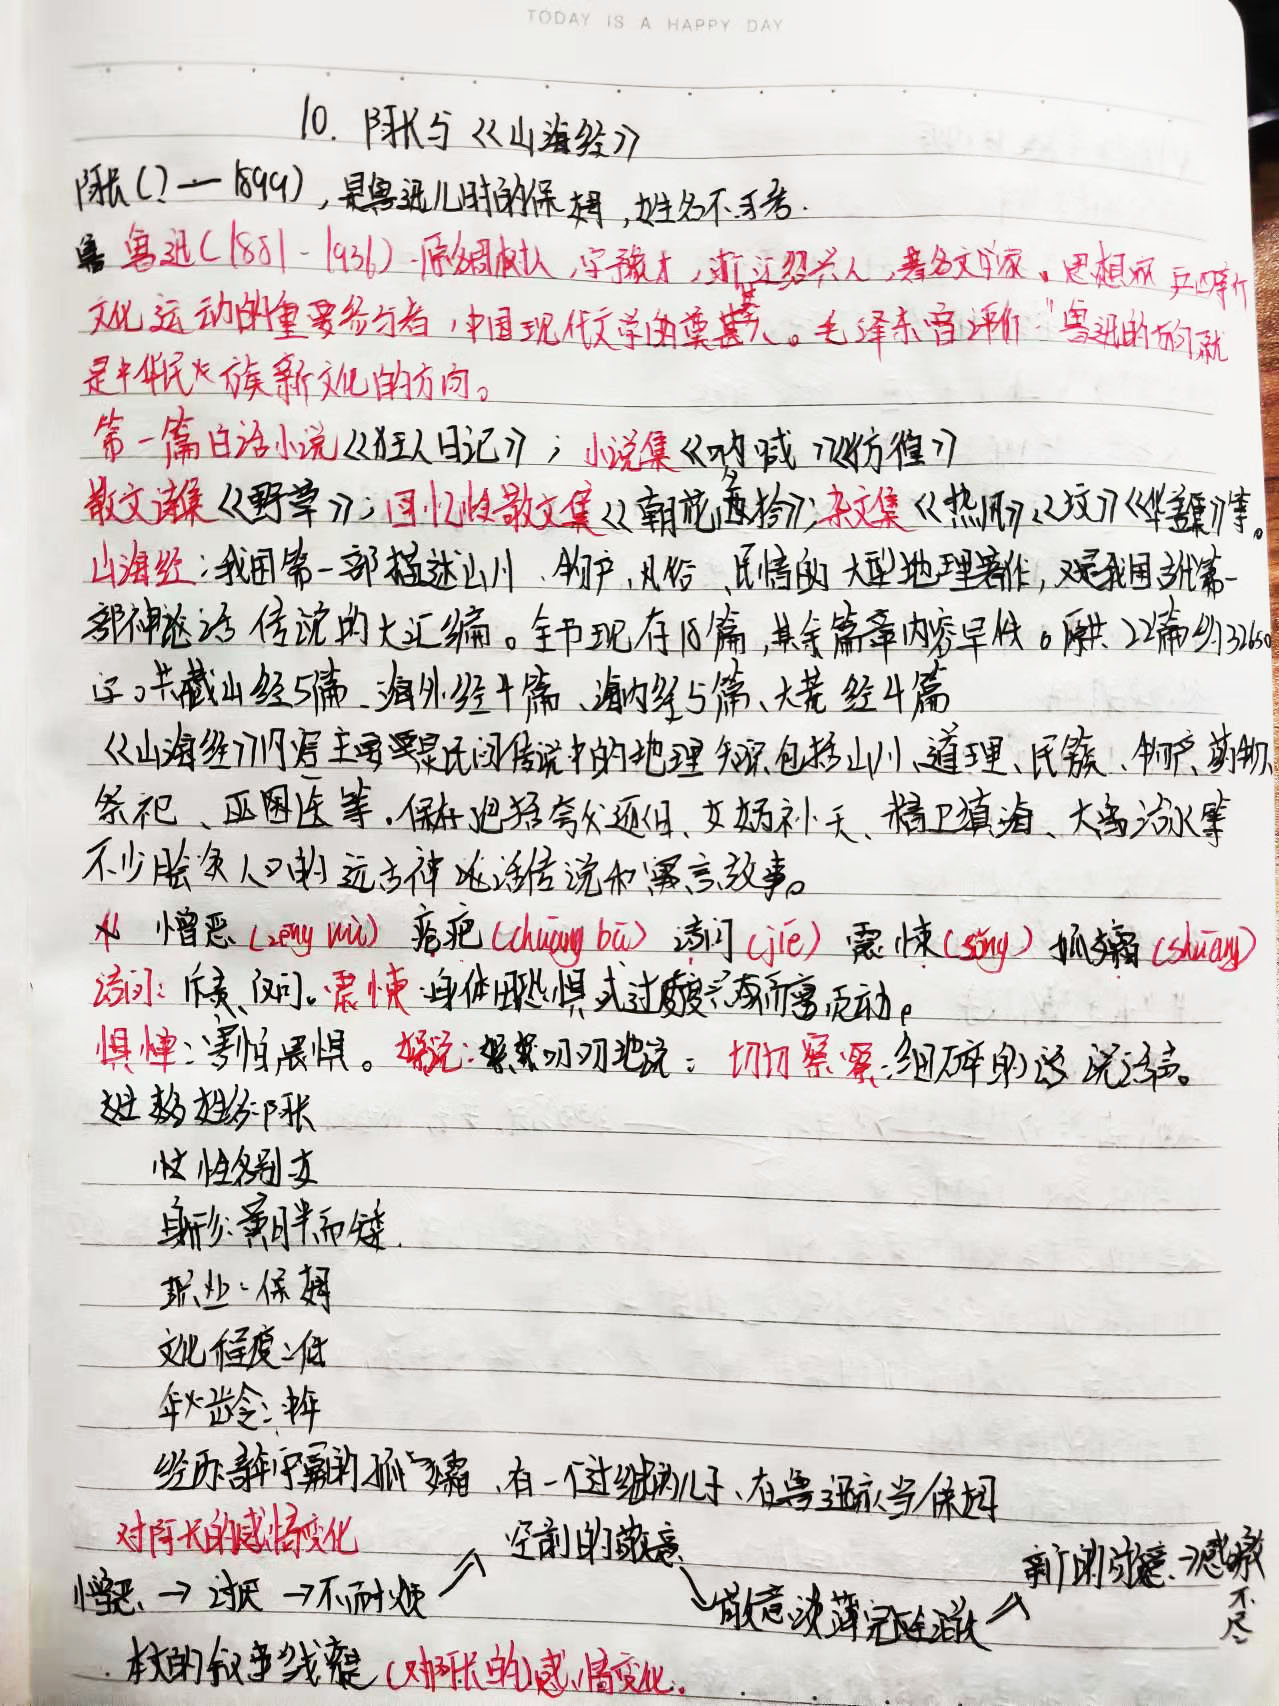 TODAY IS A HAPPY DAY
10. 阿长与《山海经》
阿长(？—1899)，是鲁迅儿时的保姆，姓名不可考.
鲁迅(1881-1936)原名周树人，字豫才，浙江绍兴人，著名文学家、思想家
文化运动的重要参与者，中国现代文学的奠基人。毛泽东曾评价"鲁迅的方向就
是中华民族新文化的方向。
第一篇白话小说《狂人日记》；小说集《呐喊》《彷徨》
散文诗集《野草》；回忆性散文集《朝花夕拾》；杂文集《热风》《坟》《华盖集》等。
山海经：我国第一部描述山川、物产、风俗、民情的大型地理著作，又是我国古代第一
部神话传说的大汇编。全书现存18篇，其余篇章内容早佚。原共22篇约32650
字。共藏山经5篇、海外经4篇、海内经5篇、大荒经4篇
《山海经》内容主要是民间传说中的地理知识包括山川、道理、民族、物产、药物、
祭祀、巫医等。保存包括夸父逐日、女娲补天、精卫填海、大禹治水等
不少脍炙人口的远古神话传说和寓言故事。
憎恶(zēng wù) 疮疤(chuāng bā) 诘问(jié) 震悚(sǒng) 孤孀(shuāng)
诘问：斥责、仅问。震悚：身体因恐惧或过度兴奋而震动。
惧惮：害怕畏惧。絮说：絮絮叨叨地说；切切察察：细碎的说话声。
姓名：阿长
性别：女
身形：黄胖而矮.
职业：保姆
文化程度：低
年龄：中年
经历：青年守寡的孤孀、有一个过继的儿子、在鲁迅家当保姆
对阿长的感情变化
空前的敬意
新的敬意→感激不尽
憎恶→讨厌→不耐烦
敬意淡薄完全消失
本文的叙事线索是(对阿长的)感情变化.